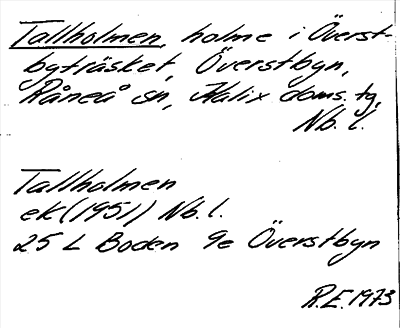 Tallholmen, holme i Överst-
byträsket, Överstbyn,
Råneå sn, Kalix doms. tg,
Nb. l.
Tallholmen
ek (1951) Nb. l.
25 L Boden 9e Överstbyn
R.E. 1973